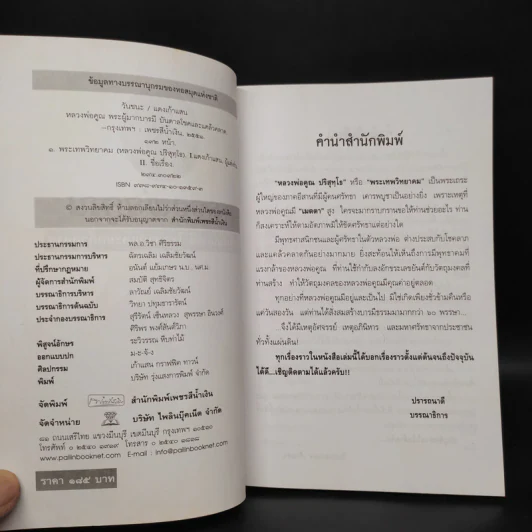 ข้อมูลทางบรรณานุกรมของหอสมุดแห่งชาติ
วันชนะ / แดงเก้าแสน
หลวงพ่อคูณ พระผู้มากบารมี บันดาลโชคและแคล้วคลาด
--กรุงเทพฯ : เพชรสีน้ำเงิน, ๒๕๕๑
๑๓๒ หน้า.
๑. พระเทพวิทยาคม (หลวงพ่อคูณ ปริสุทฺโธ) I.แดงเก้าแสน
II. ชื่อเรื่อง.
ISBN
© สงวนลิขสิทธิ์ ห้ามลอกเลียนไม่ว่าส่วนหนึ่งส่วนใดของหนังสือ
นอกจากจะได้รับอนุญาตจาก สำนักพิมพ์เพชรสีน้ำเงิน
ประธานกรรมการ พล.อ.วิชา ศิริธรรม
ประธานกรรมการบริหาร ฉัตรเฉลิม เฉลิมชัยวัฒน์
ที่ปรึกษากฎหมาย อนันต์ แย้มเกษร น.บ. นศ.ม.
ผู้จัดการสำนักพิมพ์ สมบัติ สุทธิจิตร
บรรณาธิการบริหาร ลาวัณย์ เฉลิมชัยวัฒน์
บรรณาธิการต้นฉบับ วิทยา ปทุมธารารัตน์
ประจำกองบรรณาธิการ สุรีรัตน์ เซ็นหลวง สุพรรษา อินวงค์
ศิริพร พงศ์สันติวิภา
พิสูจน์อักษร ระวิวรรณ ทีบท่าไม้
ออกแบบปก ม-ะ-จิ-ง
ศิลปกรรม เก้าแสน กราฟฟิค ทาวน์
พิมพ์ บริษัท รุ่งแสงการพิมพ์ จำกัด
จัดพิมพ์ สำนักพิมพ์เพชรสีน้ำเงิน
จัดจำหน่าย บริษัท ไพลินบุ๊คเน็ต จำกัด
๘๑ ถนนเสรีไทย แขวงมีนบุรี เขตมีนบุรี กรุงเทพฯ ๑๐๕๑๐
www.pailinbooknet.com E-mail : info@pailinbooknet.com
ราคา ๑๘๕ บาท
คำนำสำนักพิมพ์
"หลวงพ่อคูณ ปริสุทฺโธ" หรือ "พระเทพวิทยาคม" เป็นพระเถระ
ผู้ใหญ่ของภาคอีสานที่มีผู้คนศรัทธา เคารพบูชาเป็นอย่างยิ่ง เพราะเหตุที่
หลวงพ่อคูณมี "เมตตา" สูง ใครจะมากราบกรานขอให้ท่านช่วยอะไร ท่าน
ก็สงเคราะห์ให้ตามอัตภาพมิให้ขัดศรัทธาแต่อย่างใด
มีพุทธศาสนิกชนและผู้ศรัทธาในตัวหลวงพ่อ ต่างประสบกับโชคลาภ
และแคล้วคลาดกันอย่างมากมาย ยิ่งสะท้อนให้เห็นถึงการมีพุทธาคมที่
แรงกล้าของหลวงพ่อคูณ ที่ท่านใช้กำกับลงอักขระเลขยันต์กับวัตถุมงคลที่
ท่านสร้าง ทำให้วัตถุมงคลของหลวงพ่อคูณมีคุณค่าอยู่ตลอด
ทุกอย่างที่หลวงพ่อคูณมีอยู่และเป็นไป มิใช่เกิดเพียงชั่วข้ามคืนหรือ
แค่วันสองวัน แต่ท่านได้สั่งสมสร้างบารมีธรรมมามากกว่า ๖๐ พรรษา...
จึงได้มีเหตุอัศจรรย์ เหตุอภินิหาร และมหาศรัทธาจากประชาชน
ทั่วทั้งแผ่นดิน!
ทุกเรื่องราวในหนังสือเล่มนี้ได้บอกเรื่องราวตั้งแต่ต้นจนถึงปัจจุบัน
ได้ดี...เชิญติดตามได้แล้วครับ!!
ปรารถนาดี
บรรณาธิการ